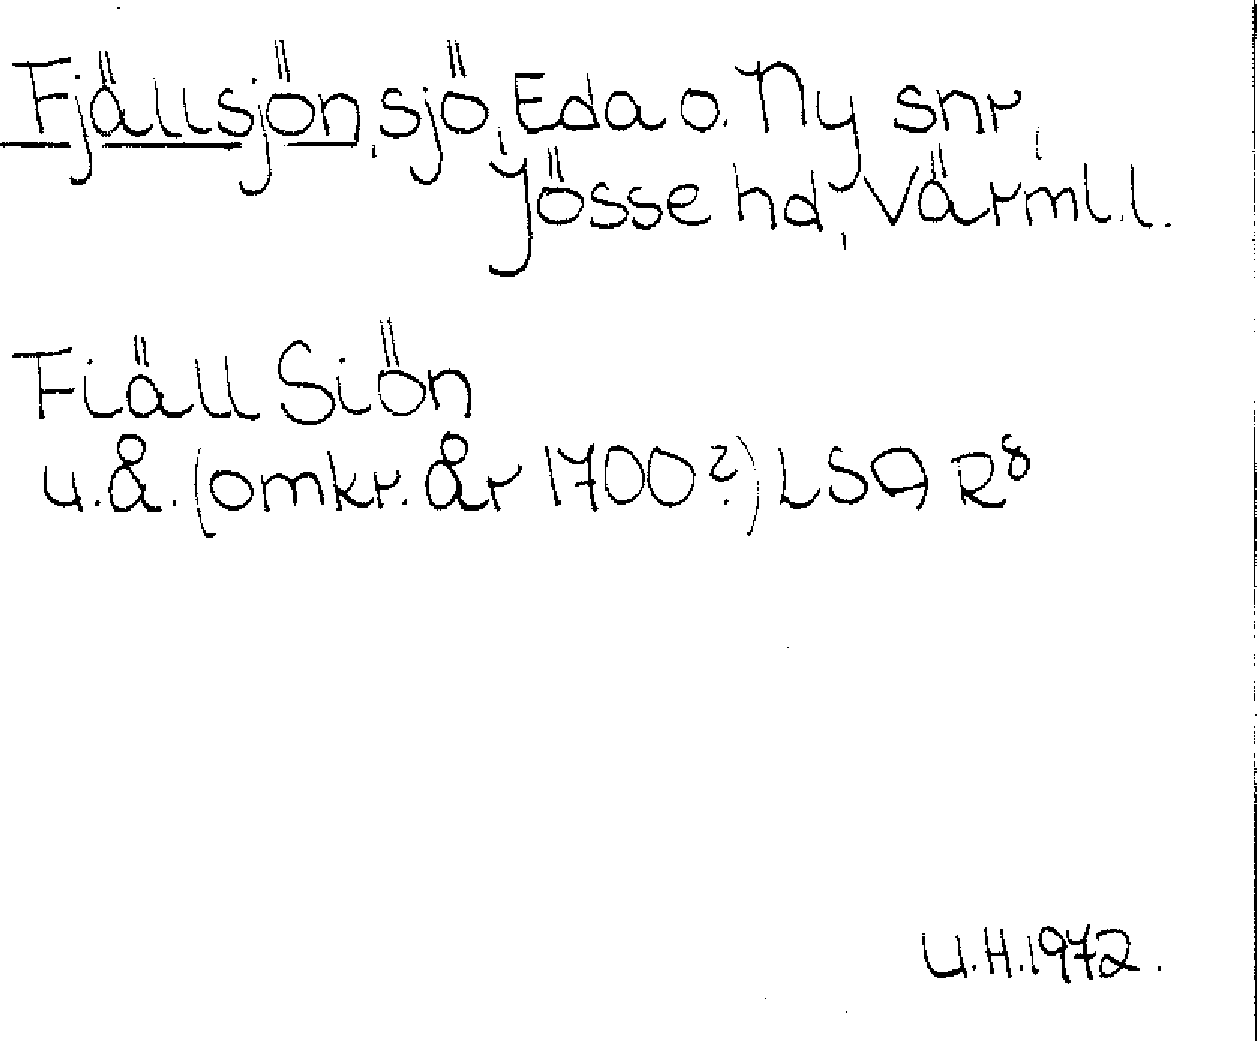 Fjällsjön, sjö, Eda o. Ny snr,
Jösse hd, Värml. l.
Fiäll Siön
u.å. (omkr. år 1700?) LSA R⁸
U.H. 1972.